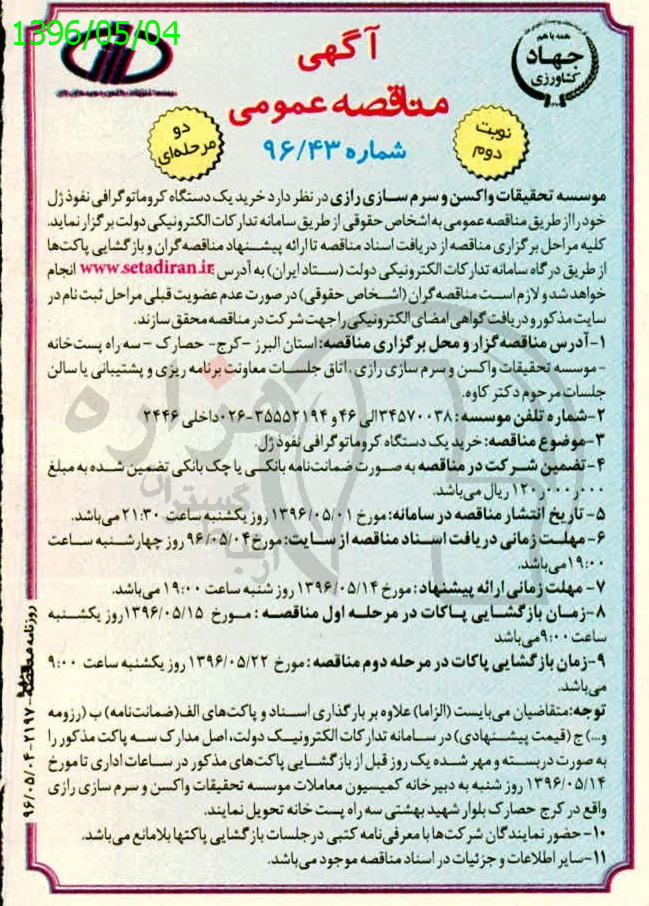 1396/05/04
همه با هم
جهاد
کشاورزی
آگهی
مناقصه عمومی
شماره ۹۶/۴۳
نوبت
دوم
دو
مرحله‌ای
موسسه تحقیقات واکسن و سرم سازی رازی در نظر دارد خرید یک دستگاه کروماتوگرافی نفوذ ژل
خود را از طریق مناقصه عمومی به اشخاص حقوقی از طریق سامانه تدارکات الکترونیکی دولت برگزار نماید.
کلیه مراحل برگزاری مناقصه از دریافت اسناد مناقصه تا ارائه پیشنهاد مناقصه گران و بازگشایی پاکت‌ها
از طریق درگاه سامانه تدارکات الکترونیکی دولت (ستاد ایران) به آدرس www.setadiran.ir انجام
خواهد شد و لازم است مناقصه گران (اشخاص حقوقی) در صورت عدم عضویت قبلی مراحل ثبت نام در
سایت مذکور و دریافت گواهی امضای الکترونیکی را جهت شرکت در مناقصه محقق سازند.
۱-آدرس مناقصه گزار و محل برگزاری مناقصه: استان البرز -کرج- حصارک - سه راه پست خانه
-موسسه تحقیقات واکسن و سرم سازی رازی. اتاق جلسات معاونت برنامه ریزی و پشتیبانی یا سالن
جلسات مرحوم دکتر کاوه.
۲-شماره تلفن موسسه: ۳۴۵۷۰۰۳۸الی ۴۶ و ۳۵۵۵۲۱۹۴-۰۲۶داخلی ۲۴۴۶
۳-موضوع مناقصه: خرید یک دستگاه کروماتوگرافی نفوذ ژل.
۴-تضمین شرکت در مناقصه به صورت ضمانت‌نامه بانکی یا چک بانکی تضمین شده به مبلغ
۱۲۰ر۰۰۰ر۰۰۰ ریال می‌باشد.
۵- تاریخ انتشار مناقصه در سامانه: مورخ ۱۳۹۶/۰۵/۰۱ روز یکشنبه ساعت ۲۱:۳۰ می‌باشد.
۶- مهلت زمانی دریافت اسناد مناقصه از سایت: مورخ ۹۶/۰۵/۰۴ روز چهارشنبه ساعت
۱۹:۰۰می‌باشد.
۷- مهلت زمانی ارائه پیشنهاد: مورخ ۱۳۹۶/۰۵/۱۴ روز شنبه ساعت ۱۹:۰۰ می‌باشد.
۸-زمان بازگشایی پاکات در مرحله اول مناقصه: مورخ ۱۳۹۶/۰۵/۱۵روز یکشنبه
ساعت ۹:۰۰می‌باشد
۹-زمان بازگشایی پاکات در مرحله دوم مناقصه: مورخ ۱۳۹۶/۰۵/۲۲ روز یکشنبه ساعت ۹:۰۰
می‌باشد.
توجه: متقاضیان می‌بایست (الزاما) علاوه بر بارگذاری اسناد و پاکت‌های الف(ضمانت‌نامه) ب (رزومه
و...) ج (قیمت پیشنهادی) در سامانه تدارکات الکترونیک دولت، اصل مدارک سه پاکت مذکور را
به صورت دربسته و مهر شده یک روز قبل از بازگشایی پاکت‌های مذکور در ساعات اداری تا مورخ
۱۳۹۶/۰۵/۱۴ روز شنبه به دبیرخانه کمیسیون معاملات موسسه تحقیقات واکسن و سرم سازی رازی
واقع در کرج حصارک بلوار شهید بهشتی سه راه پست خانه تحویل نمایند.
۱۰-حضور نمایندگان شرکت‌ها با معرفی‌نامه کتبی در جلسات بازگشایی پاکتها بلامانع می‌باشد.
۱۱-سایر اطلاعات و جزئیات در اسناد مناقصه موجود می‌باشد.
روزنامه مناقصه ۲۱۹۷-۹۶/۰۵/۰۴
هزاره